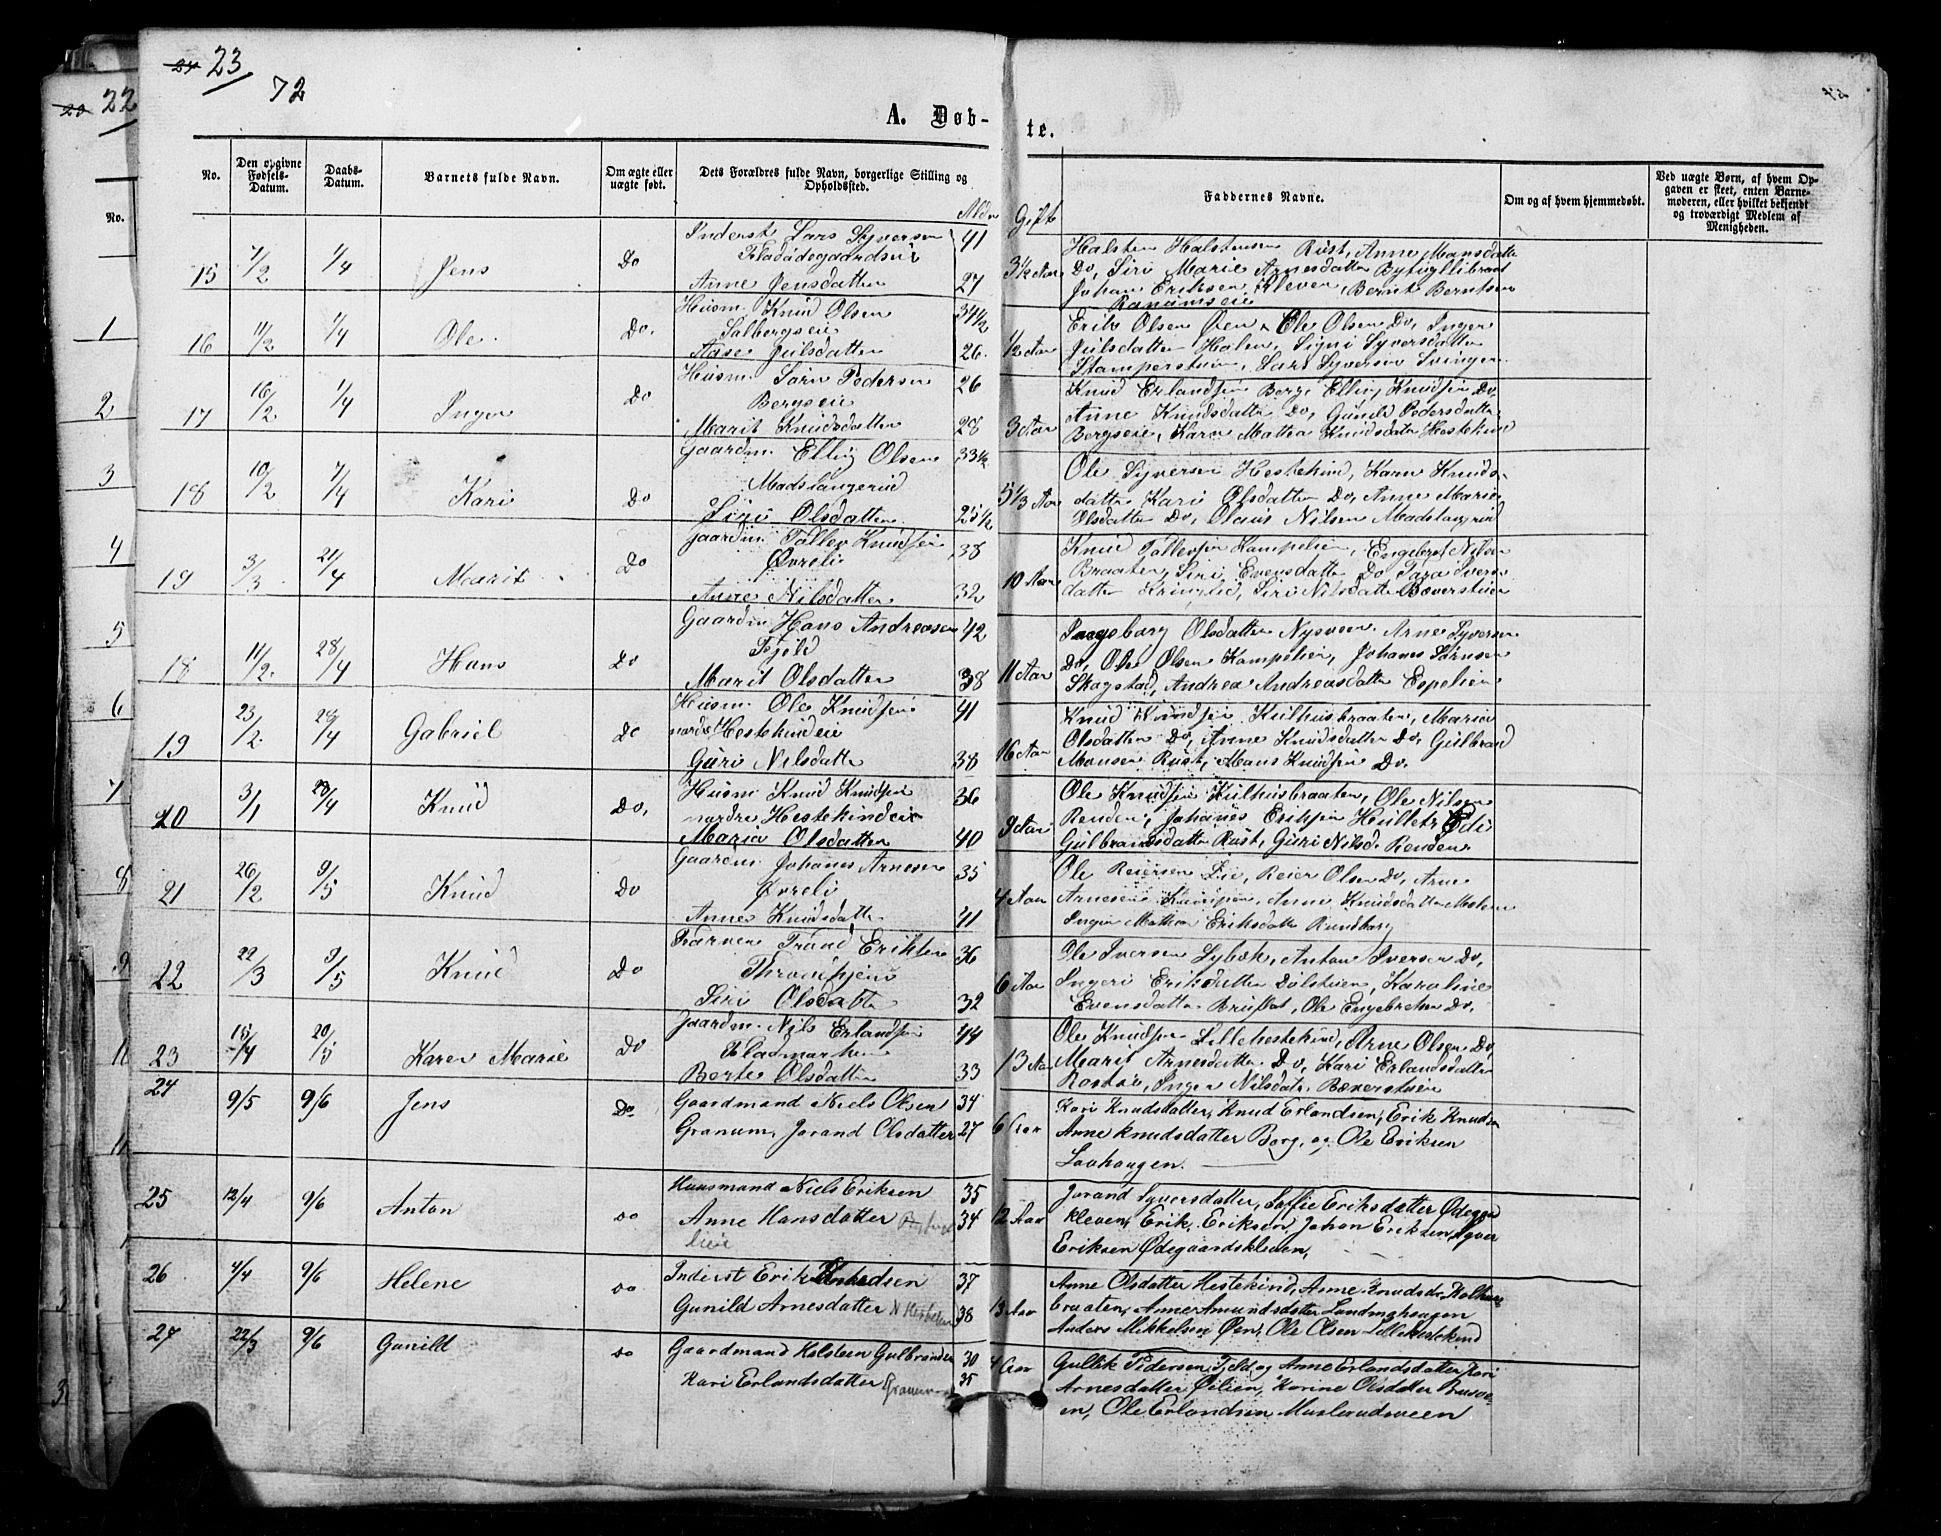 24 23
72
20 22
A. Døb-
te.
No.
Den opgivne Fødsels-Datum.
Daabs-Datum.
Barnets fulde Navn.
Om ægte eller uægte født.
Dets Forældres fulde Navn, borgerlige Stilling og Opholdssted.
Alder
Gift
Faddernes Navne.
Om og af hvem hjemmedøbt.
Ved uægte Børn, af hvem Opgaven er skeet, enten Barnemoderen, eller hvilket bekjendt og troværdigt Medlem af Menigheden.
No.
1
2
3
4
5
6
7
8
9
15 7/2 1/4 Jens Do Inderst Lars Syversen 41
Anne Jensdatter 27
3½ Aar Halsten Halstensen Rust, Anne Mansdatter
Do, Siri Marie Arnesdatter
Johan Eriksen Kleven, Bernt Berntsen
16 11/2 1/4 Ole Do. Husm. Knud Olsen 34½
Solbergseie
Aase Juilsdatter 26.
½ Aar Erik Olsen Øen, Ole Olsen Do, Inger
Juilsdatter Halen, Signi Syversdatter
Lars Syversen Svingen
17 16/2 1/4 Inger Do Husm. Sørn Pedersen 26
Bergseie
Marit Knudsdatter 28
3 Aar Knud Erlandsen Berg, Elling Knudsen Do,
Anne Knudsdatter Do, Gunild Pedersdatter
Bergseie, Karn Mathea Knudsdatr Hestekind
18 10/2 7/4 Kari Do Gaardm. Elling Olsen 33½
Madslangerud
Siri Olsdatter 25½
5⅓ Aar Ole Syversen Hestekind, Karn Knuds-
datter Kari Olsdatter Do, Anne Marie
Olsdatter Do, Olaus Nilsen Madslangrud
19 3/3 21/4 Marit Do Gaardm. Tollev Knudsen 38
Øvreli
Anne Nilsdatter 32
10 Aar Knud Tollevsen Kampelien, Engebret Nilsen
Braaten, Siri Evensdatter Do Iver-
datter Kringlid, Siri Nilsdatter Bæverstuen
18 11/2 28/4 Hans Do Gaardm Hans Andreasen 42
Fjeld
Marit Olsdatter 38
11 Aar Ingeborg Olsdatter Nysveen Arne Syversen
Do, Ole Olsen Kampelien, Johanes Sørnsen
Skogstad, Andrea Andreasdatter Espelien
19 23/2 28/4 Gabriel Do Husm. Ole Knudsen 41
nordre Hestekindeie
Guri Nilsdatter 38
16 Aar Knud Knudsen Kulhusbraaten, Maria
Olsdatter Do, Anne Knudsdatter Do, Gulbrand
Monsen Rust, Mans Knudsen Do.
20 3/1 28/4 Knud Do. Husm Knud Knudsen 36
nordre Hestekindeie
Maria Olsdatter 40
9 Aar Ole Knudsen Kulhusbraaten, Ole Nilsen
Renden, Johanes Eriksen
Gulbrandsdatter Rust, Guri Nilsd. Renden.
21 26/2 9/5 Knud Do Gaardm. Johanes Arnesen 35
Øvreli
Anne Knudsdatter 41
4 Aar Ole Reiersen Lie, Reier Olsen Do, Arne
Arnesen Anne Knudsdatter Molen
Inger Mathea Eriksdatter Rundberg
22 22/3 9/5 Knud Do Trond Eriksen 36
Siri Olsdatter 32
6 Aar Ole Iversen Sybæk, Anton Iversen Do,
Ingeri Eriksdatter Dølstuen, Karoline
Evensdatter Ole Engebretsen Do.
23 15/4 20/5 Karen Marie Do Gaardm. Nils Erlandsen 44
Fladmarken
Berte Olsdatter 33
13 Aar Ole Knudsen Lillehestekind, Arne Olsen Do,
Marit Arnesdatter Do, Kari Erlandsdatter
Inger Nilsdatr Bæverstuen
24 9/5 9/6 Jens Do Gaardmand Niels Olsen 34
Granum, Jorand Olsdatter 27
6 Aar Kari Knudsdatter, Knud Erlandsen, Erik Knudsen
Anne Knudsdatter Berg, og Ole Eriksen
Lauhaugen.
25 12/4 9/6 Anton do Huusmand Niels Eriksen 35
Anne Hansdatter 34
12 Aar Jorand Syversdatter, Soffie Eriksdatter Ødegard
kleven, Erik Eriksen, Johan Eriksen, Syver
Eriksen Ødegaardskleven,
26 4/4 9/6 Helene do Inderst Erik Knudsen 37
Gunild Arnesdatter 38
13 Aar Anne Olsdatter Hestekind, Anne Knudsdr Kolhus-
braaten, Anne Amundsdatter
Anders Mikkelsen Øen, Ole Olsen Lillehestekind
27 22/3 9/6 Gunild do Gaardmand Halsteen Gulbrandsen 30
Kari Erlandsdatter Granum 35
4 Aar Gullik Pedersen Fjeld og Anne Erlandsdatter, Kari
Arnesdatter Øelien, Karine Olsdatter Brusve-
en, Ole Erlandsen Muslerudsveen